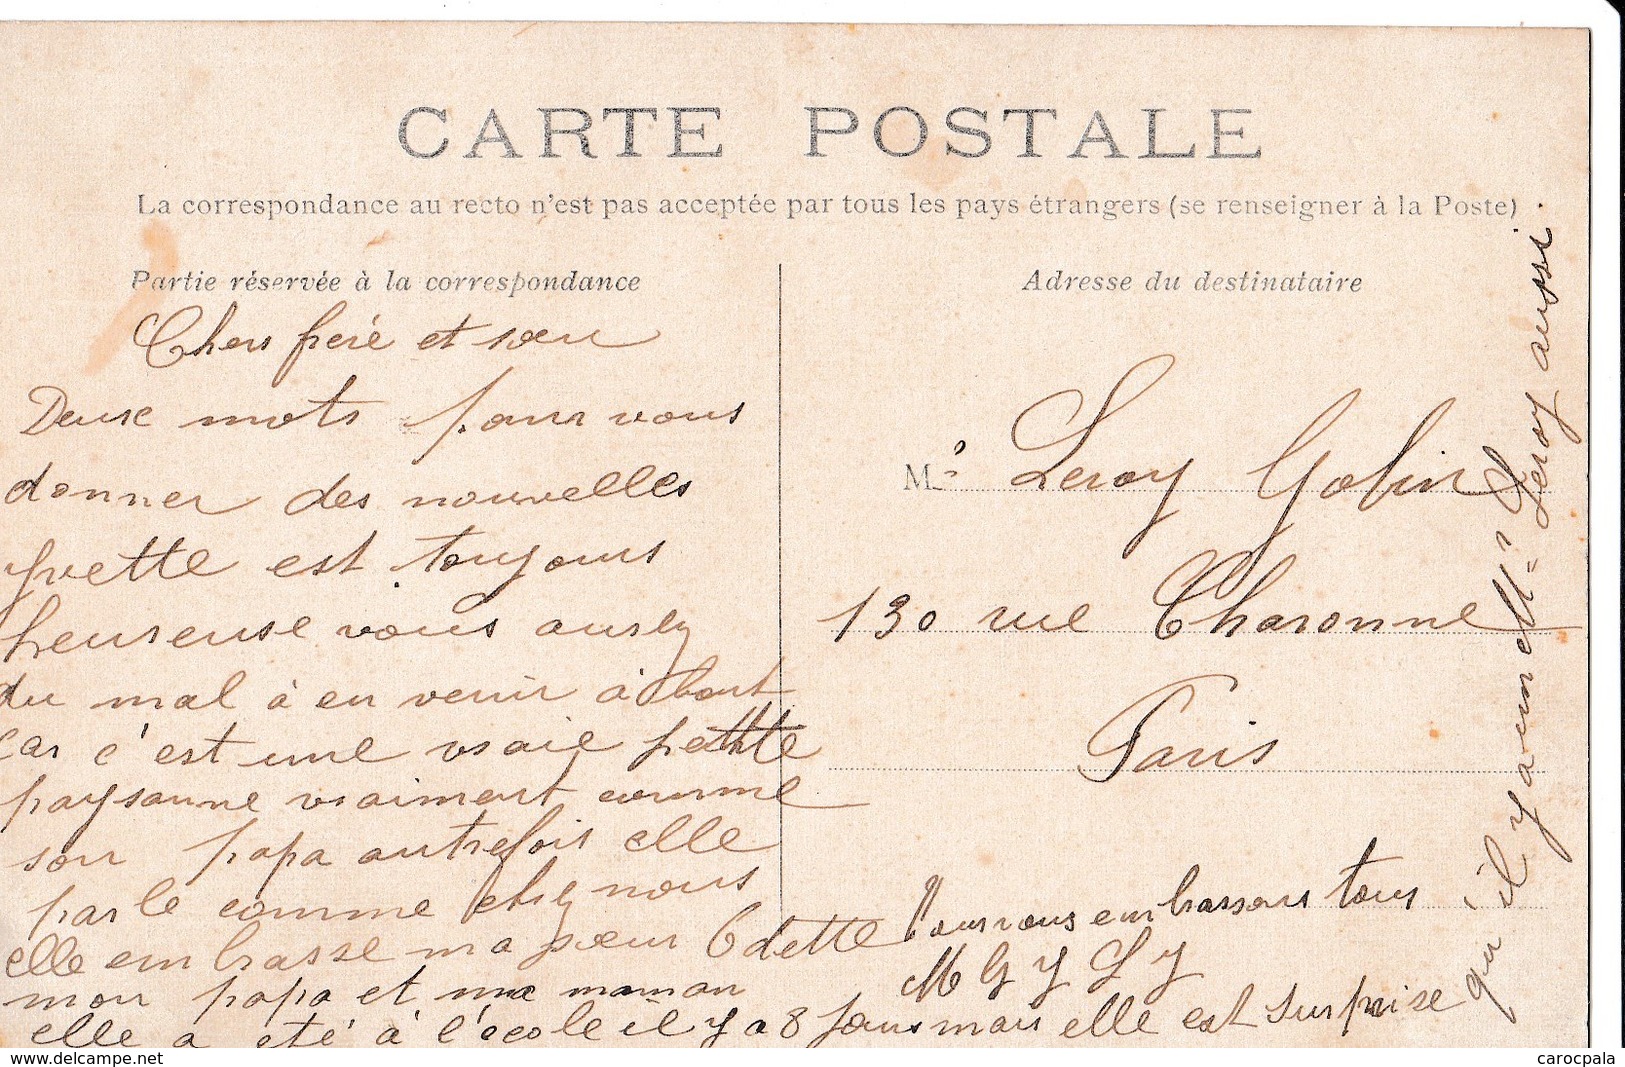 CARTE POSTALE
La correspondance au recto n'est pas acceptée par tous les pays étrangers (se renseigner à la Poste)
Partie réservée à la correspondance
Chers freré et sœur
Deux mots pour vous
donner des nouvelles
Yvette est toujours
heureuse vous aurez
du mal à en venir à bout
car c'est une vraie petite
paysanne vraiment comme
son papa autrefois elle
parle comme chez nous
elle embrasse ma sœur Odette
mon papa et ma maman
elle a eté à l'école il y a 8 jours mais elle est surprise
qu'il y a un Mr Leroy aussi
Adresse du destinataire
Mr Leroy Gobin
130 rue Charonne
Paris
Nous vous embrassons tous
M G Y L Y
www.delcampe.net
carocpala